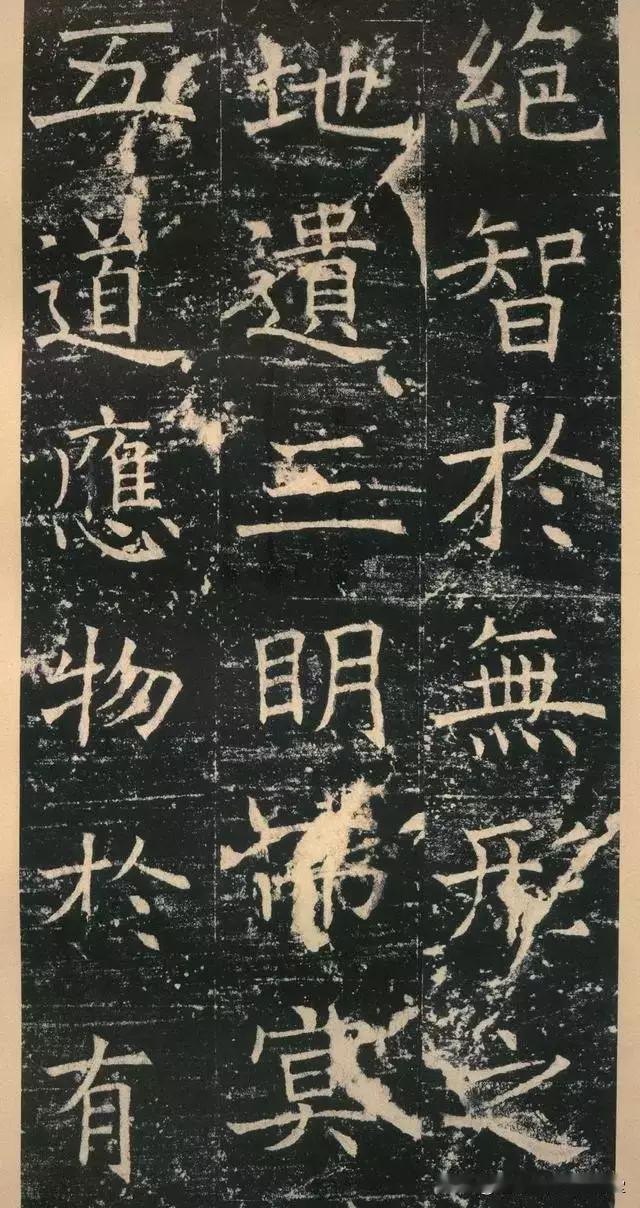 絕智於無形之
地遺三明歸寘
五道應物於有